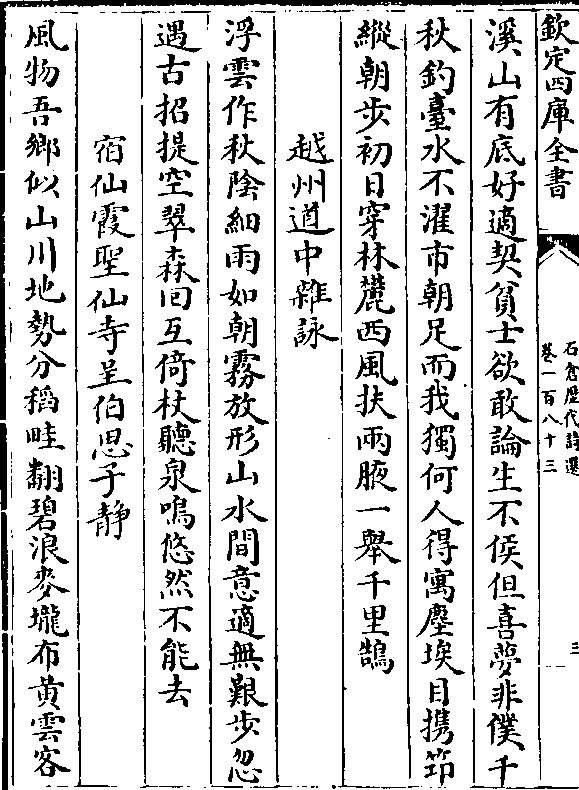 欽定四庫全書
石倉歷代詩選
卷一百八十三
三
溪山有底好適契貧士欲敢論生不侯但喜夢非僕千
秋釣臺水不濯市朝足而我獨何人得寓塵埃目携笻
縱朝步初日穿林麓西風扶兩腋一舉千里鵠
越州道中雜詠
浮雲作秋陰細雨如朝霧放形山水間意適無艱步忽
遇古招提空翠森回互倚杖聽泉鳴悠然不能去
宿仙霞聖仙寺呈伯思子静
風物吾鄉似山川地勢分稻畦翻碧浪麥壠布黄雲客